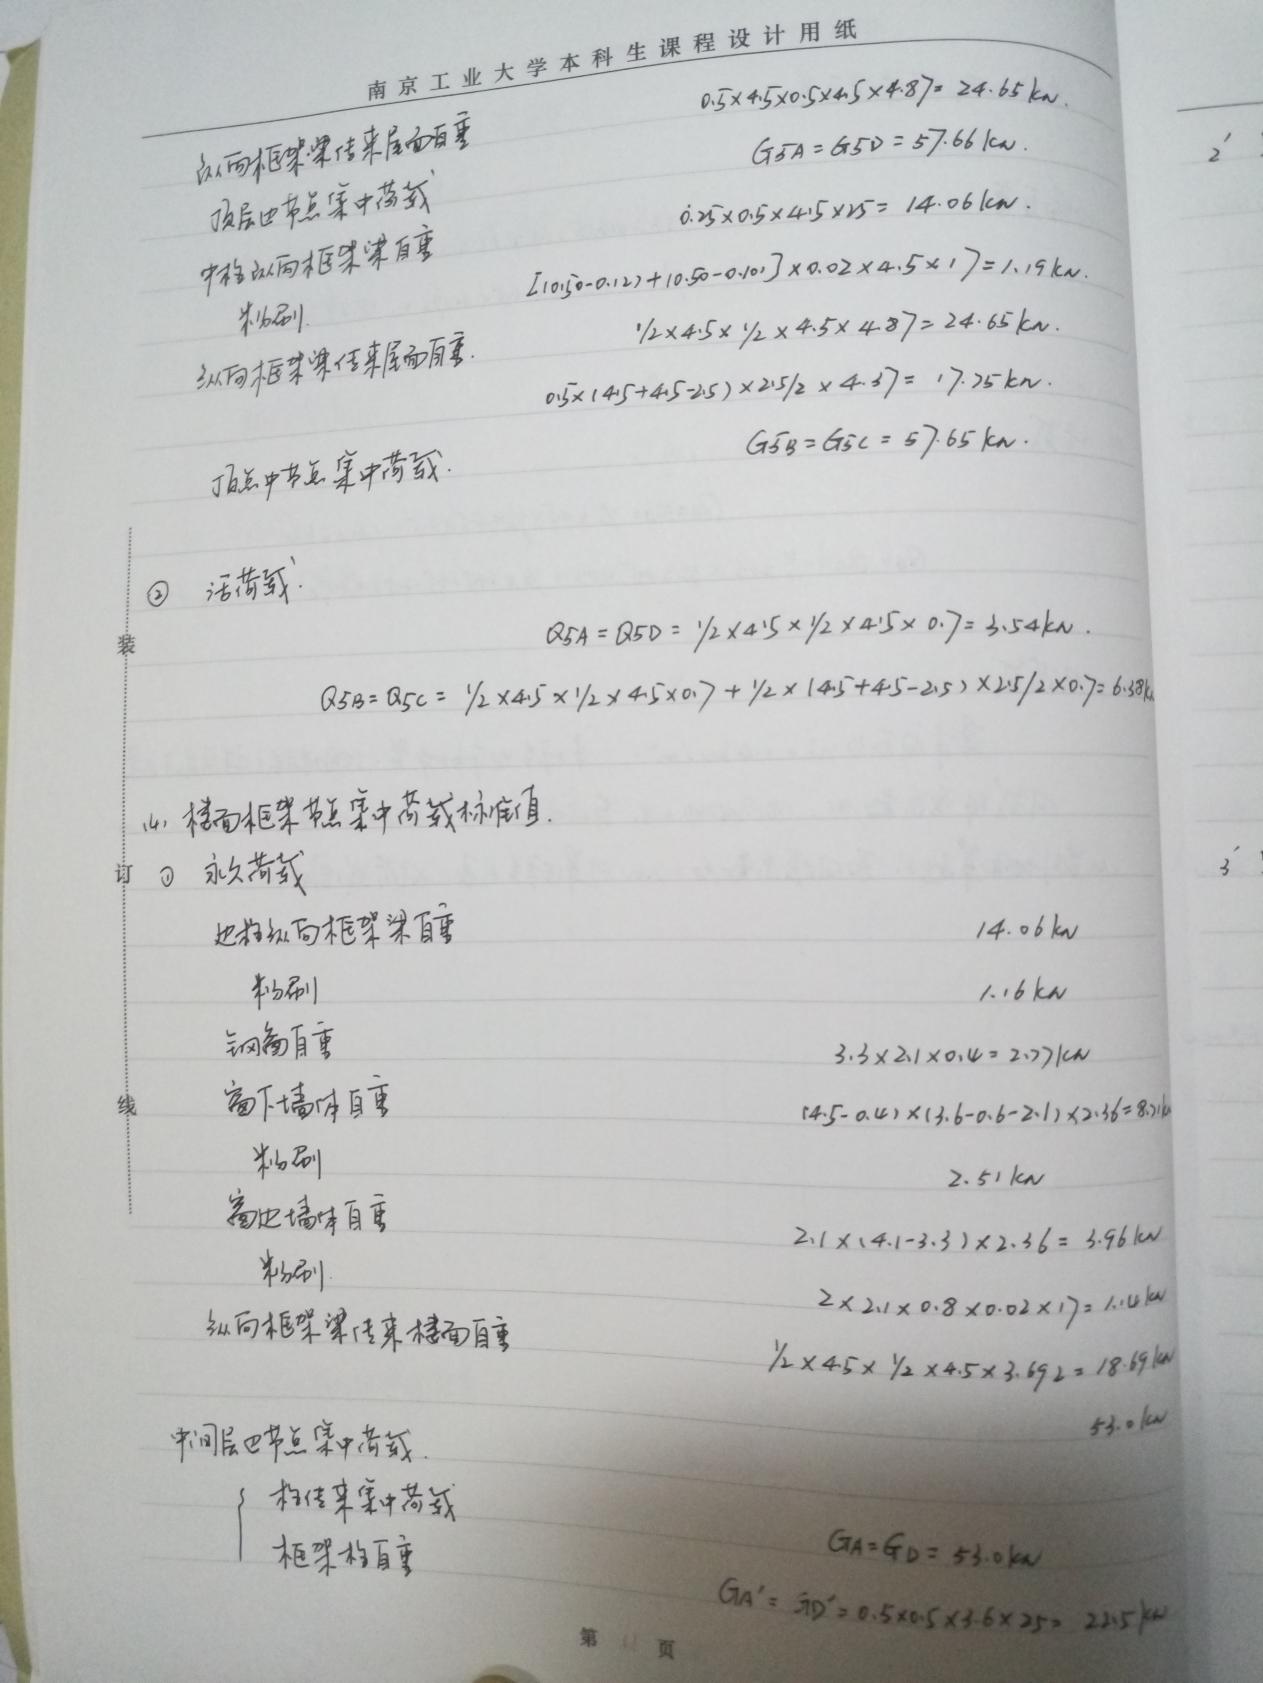 南京工业大学本科生课程设计用纸
纵向框架梁传来屋面自重 0.5×4.5×0.5×4.5×4.87=24.65kN.
顶层边节点集中荷载 G5A=G5D=57.66kN.
中柱纵向框架梁自重 0.25×0.5×4.5×25=14.06kN.
粉刷. [(0.50-0.12)+(0.50-0.10)]×0.02×4.5×17=1.19kN.
纵向框架梁传来屋面自重. 1/2×4.5×1/2×4.5×4.87=24.65kN.
0.5×(4.5+4.5-2.5)×2.5/2×4.37=17.75kN.
顶点中节点集中荷载. G5B=G5C=57.65kN.
② 活荷载.
Q5A=Q5D=1/2×4.5×1/2×4.5×0.7=3.54kN.
Q5B=Q5C=1/2×4.5×1/2×4.5×0.7+1/2×(4.5+4.5-2.5)×2.5/2×0.7=6.38kN
(4) 楼面框架节点集中荷载标准值.
① 永久荷载
边柱纵向框架梁自重 14.06kN
粉刷 1.16kN
钢窗自重 3.3×2.1×0.4=2.77kN
窗下墙体自重 (4.5-0.4)×(3.6-0.6-2.1)×2.36=8.71kN
粉刷 2.51kN
窗边墙体自重 2.1×(4.1-3.3)×2.36=3.96kN
粉刷. 2×2.1×0.8×0.02×17=1.14kN
纵向框架梁传来楼面自重 1/2×4.5×1/2×4.5×3.692=18.69kN
中间层边节点集中荷载. 53.0kN
柱传来集中荷载 GA=GD=53.0kN
框架柱自重 GA'=GD'=0.5×0.5×3.6×25=22.5kN
第 页
装
订
线
2'
3'